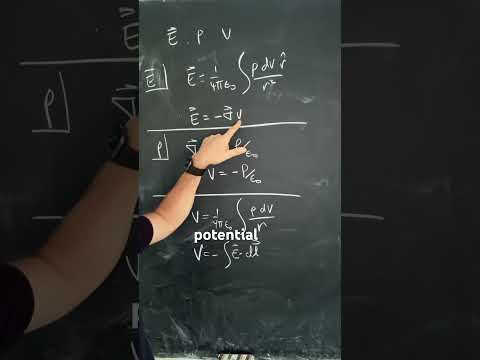 E⃗ . ρ V
E⃗ E⃗ = 1/4πε₀ ∫ ρ dv r̂/r²
E⃗ = -∇⃗ V
ρ ∇⃗ ρ/ε₀
V = -ρ/ε₀
V = 1/4πε₀ ∫ ρ dv/r
potential
V = - ∫ E⃗ · dl⃗